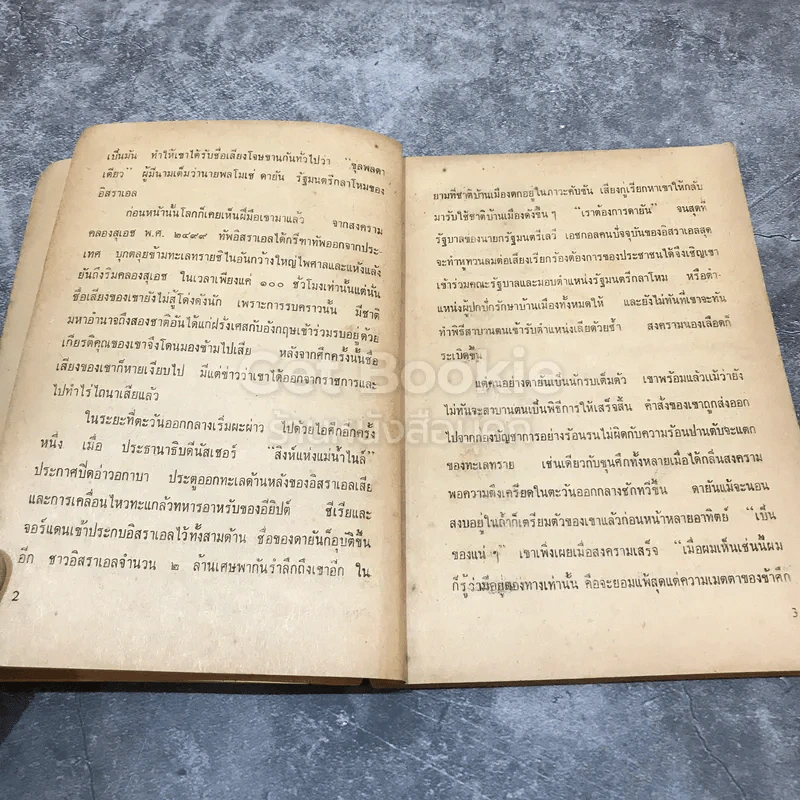 เป็นมัน ทำให้เขาได้รับชื่อเสียงโจษขานกันทั่วไปว่า “ขุนพลตา
เดียว” ผู้มีนามเต็มว่านายพลโมเช่ ดายัน รัฐมนตรีกลาโหมของ
อิสราเอล
ก่อนหน้านั้นโลกก็เคยเห็นฝีมือเขามาแล้ว จากสงคราม
คลองสุเอช พ.ศ. ๒๔๙๙ ทัพอิสราเอลได้กรีฑาทัพออกจากประ-
เทศ บุกตลุยข้ามทะเลทรายซีไนอันกว้างใหญ่ไพศาลและแห้งแล้ง
ยันถึงริมคลองสุเอช ในเวลาเพียงแค่ ๑๐๐ ชั่วโมงเท่านั้นแต่นั่น
ชื่อเสียงของเขายังไม่สู้โด่งดังนัก เพราะการรบคราวนั้น มีชาติ
มหาอำนาจถึงสองชาติอันได้แก่ฝรั่งเศสกับอังกฤษเข้าร่วมรบอยู่ด้วย
เกียรติคุณของเขาจึงโดนมองข้ามไปเสีย หลังจากศึกครั้งนั้นชื่อ
เสียงของเขาก็หายเงียบไป มีแต่ข่าวว่าเขาได้ออกจากราชการและ
ไปทำไร่ไถนาเสียแล้ว
ในระยะที่ตะวันออกกลางเริ่มผะผ่าว ไปด้วยไอศึกอีกครั้ง
หนึ่ง เมื่อ ประธานาธิบดีนัสเซอร์ “สิงห์แห่งแม่น้ำไนล์”
ประกาศปิดอ่าวอกาบา ประตูออกทะเลด้านหลังของอิสราเอลเสีย
และการเคลื่อนไหวทะแกล้วทหารอาหรับของอียิปต์ ซีเรียและ
จอร์แดนเข้าประกบอิสราเอลไว้ทั้งสามด้าน ชื่อของดายันก็อุบัติขึ้น
อีก ชาวอิสราเอลจำนวน ๒ ล้านเศษพากันรำลึกถึงเขาอีก ใน
2
ยามที่ชาติบ้านเมืองตกอยู่ในภาวะคับขัน เสียงกู่เรียกหาเขาให้กลับ
มารับใช้ชาติบ้านเมืองดังขึ้นๆ “เราต้องการดายัน” จนสุดที่
รัฐบาลของนายกรัฐมนตรีเลวี เอชกอลคนปัจจุบันของอิสราเอลสุด
จะทำหูทวนลมต่อเสียงเรียกร้องต้องการของประชาชนได้จึงเชิญเขา
เข้าร่วมคณะรัฐบาลและมอบตำแหน่งรัฐมนตรีกลาโหม หรือตำ-
แหน่งผู้ปกปักรักษาบ้านเมืองทั้งหมดให้ และยังไม่ทันที่เขาจะทัน
ทำพิธีสาบานตนเข้ารับตำแหน่งเสียด้วยซ้ำ สงครามนองเลือดก็
ระเบิดขึ้น
แต่คนอย่างดายันเป็นนักรบเต็มตัว เขาพร้อมแล้วแม้ว่ายัง
ไม่ทันจะสาบานตนเป็นพิธีการให้เสร็จสิ้น คำสั่งของเขาถูกส่งออก
ไปจากกองบัญชาการอย่างร้อนรนไม่ผิดกับความร้อนปานตับจะแตก
ของทะเลทราย เช่นเดียวกับขุนศึกทั้งหลายเมื่อได้กลิ่นสงคราม
พอความตึงเครียดในตะวันออกกลางชักทวีขึ้น ดายันแม้จะนอน
สงบอยู่ในถ้ำก็เตรียมตัวของเขาแล้วก่อนหน้าหลายอาทิตย์ “เป็น
ของแน่ ๆ” เขาเพิ่งเผยเมื่อสงครามเสร็จ “เมื่อผมเห็นเช่นนี้ผม
ก็รู้ว่ามีอยู่สองทางเท่านั้น คือจะยอมแพ้สุดแต่ความเมตตาของข้าศึก
3
Get Bookie
ร้านหนังสือมือ